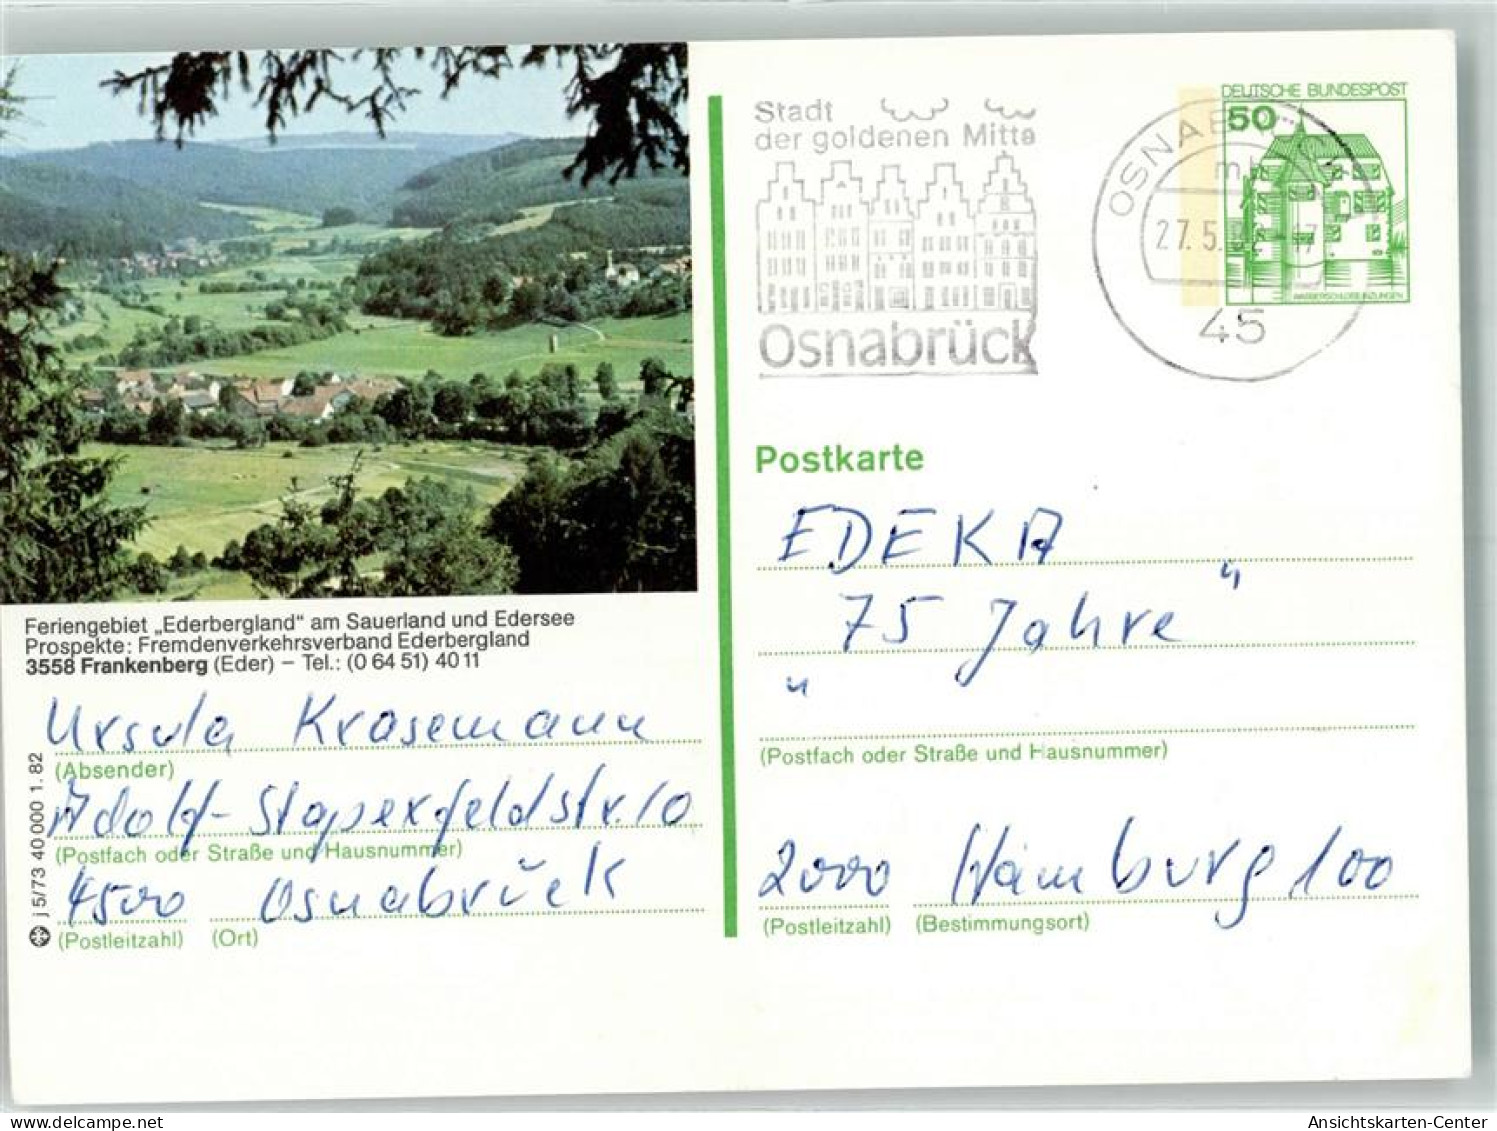 Feriengebiet „Ederbergland“ am Sauerland und Edersee
Prospekte: Fremdenverkehrsverband Ederbergland
3558 Frankenberg (Eder) – Tel.: (0 64 51) 40 11
Ursula Krasemann
(Absender)
Adolf-Staperfeldstr. 10
(Postfach oder Straße und Hausnummer)
4500 Osnabrück
(Postleitzahl) (Ort)
j 5/73 40 000 1. 82
Stadt
der goldenen Mitte
Osnabrück
DEUTSCHE BUNDESPOST
50
WASSERSCHLOSS INZLINGEN
27.5.
45
Postkarte
EDEKA
75 Jahre "
"
(Postfach oder Straße und Hausnummer)
2000 Hamburg 100
(Postleitzahl) (Bestimmungsort)
Ansichtskarten-Center